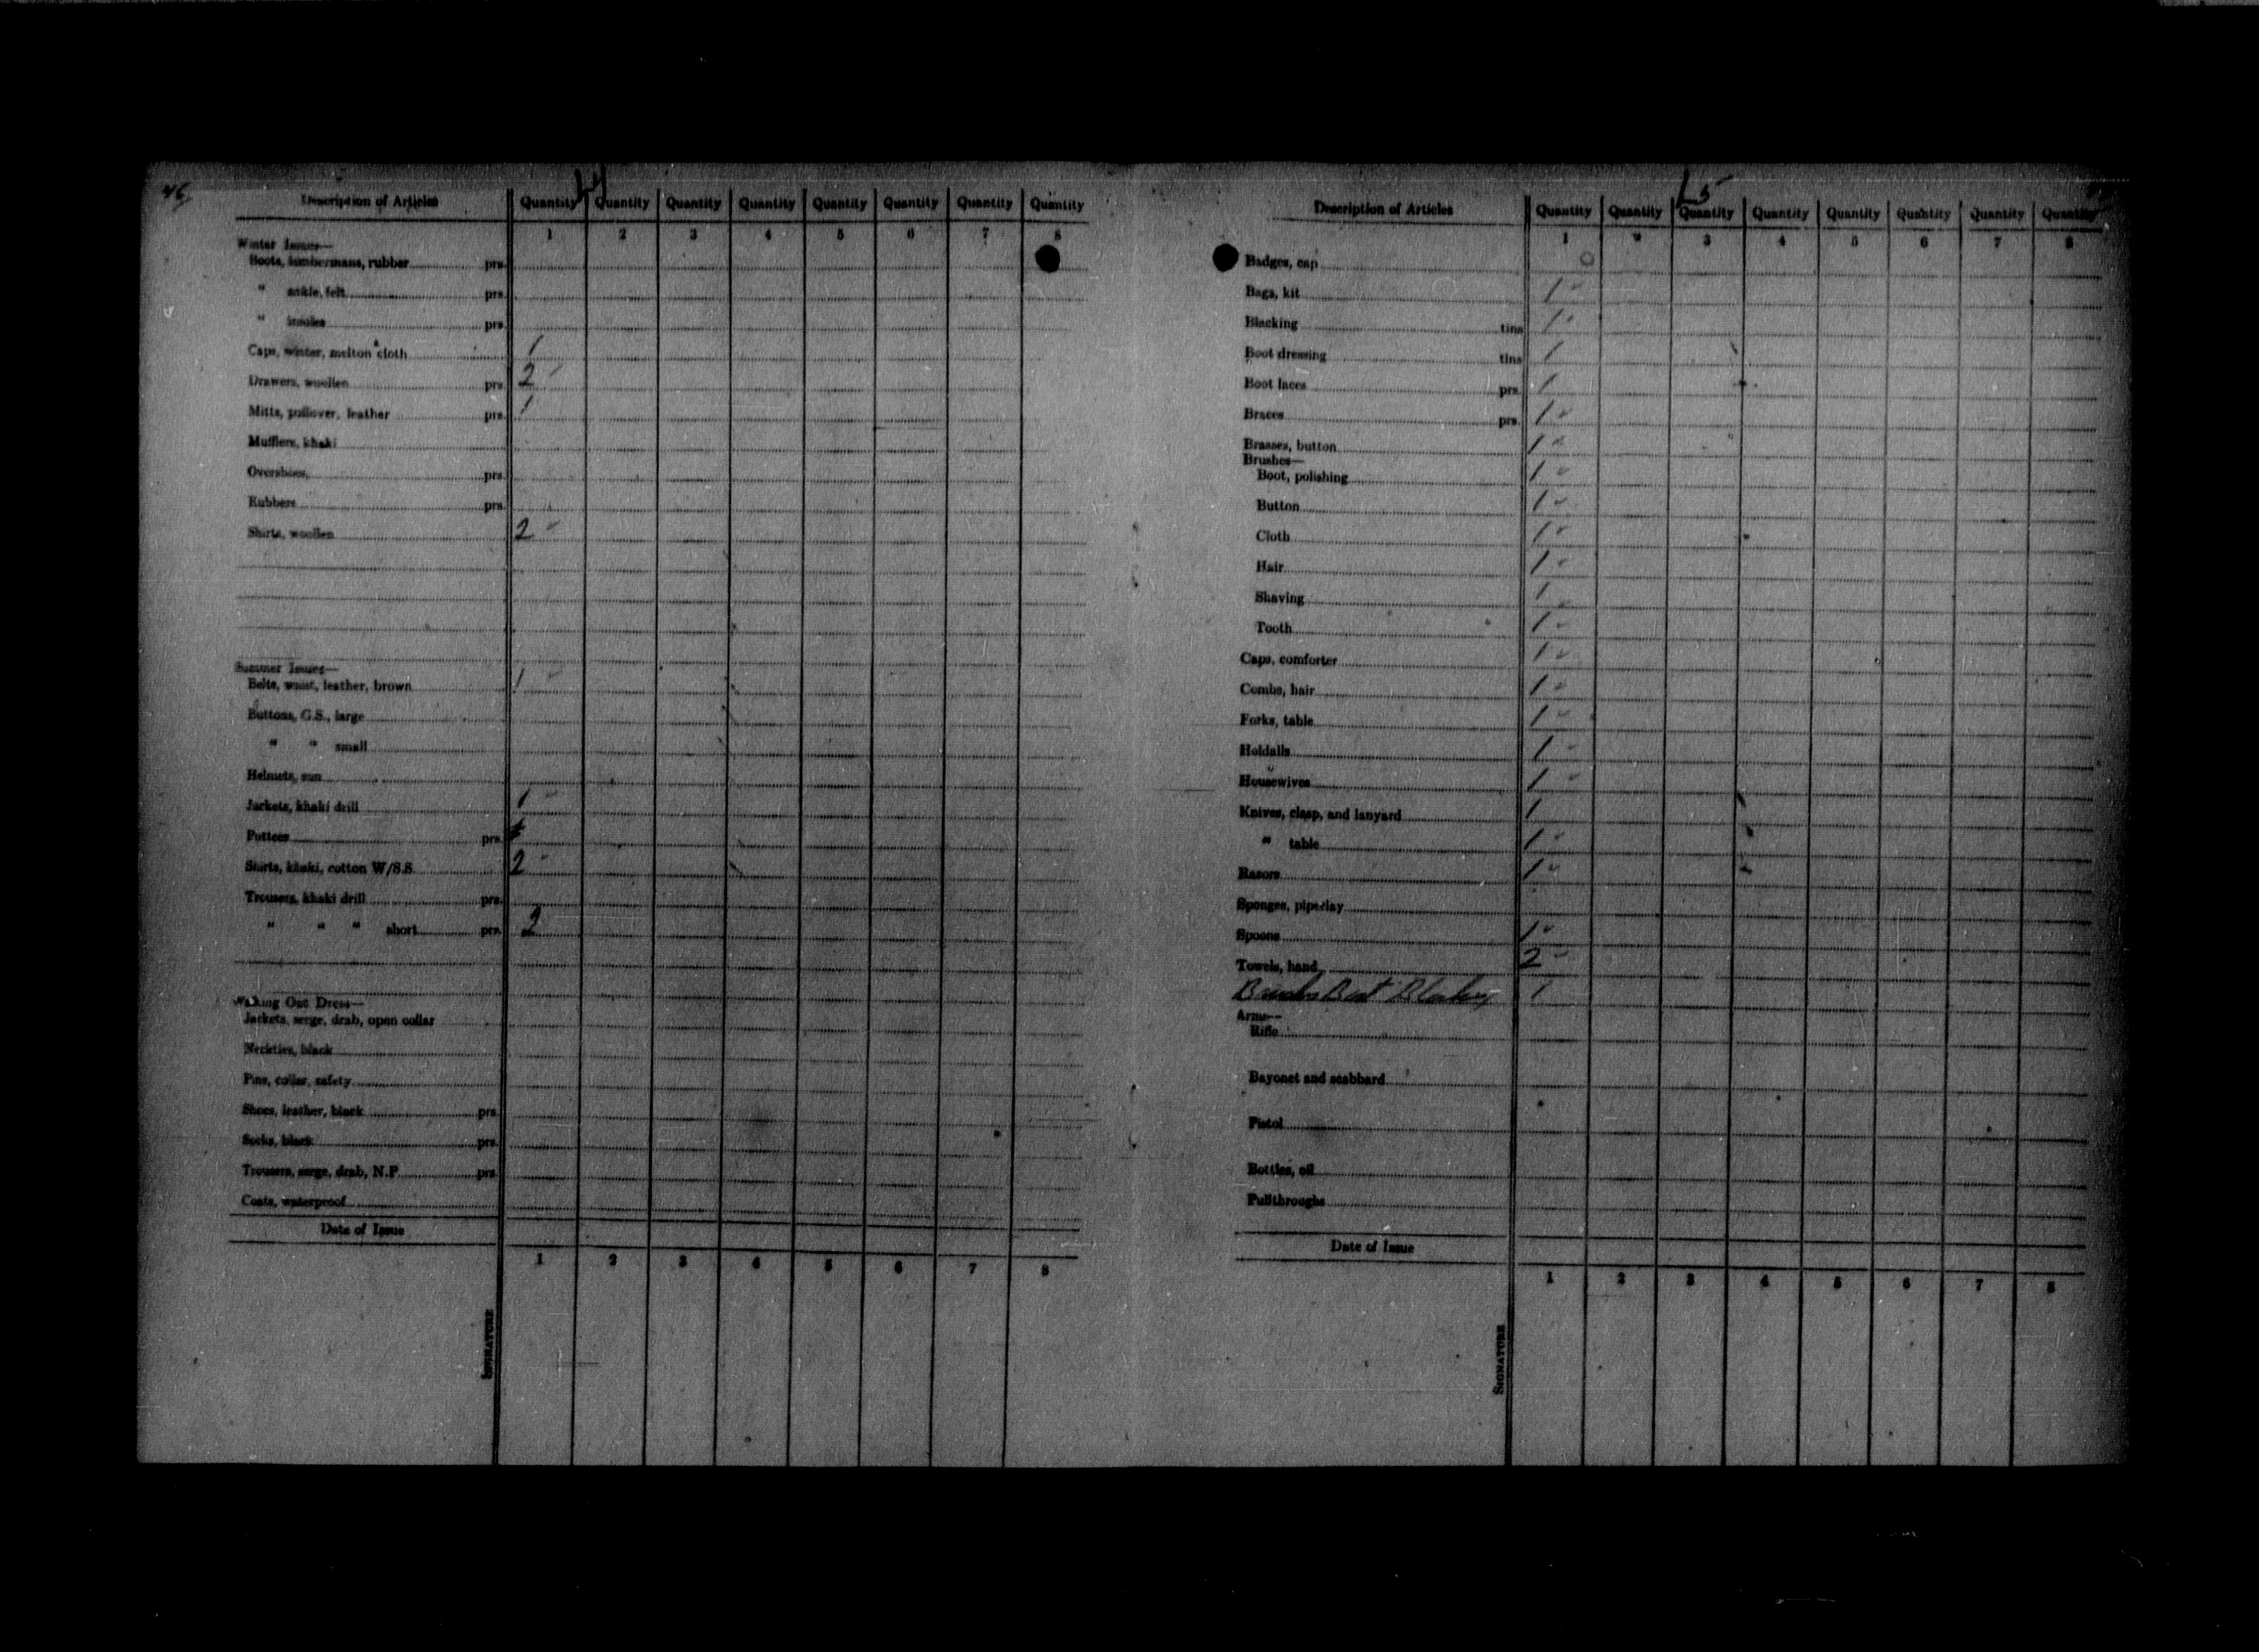 46
Description of Articles Quantity Quantity Quantity Quantity Quantity Quantity Quantity Quantity
1 2 3 4 5 6 7 8
Winter Issues—
Boots, lumbermans, rubber prs.
" ankle, felt prs.
" insoles prs.
Caps, winter, melton cloth 1
Drawers, woollen prs. 2
Mitts, pullover, leather prs. 1
Mufflers, khaki
Overshoes, prs.
Rubbers prs.
Shirts, woollen 2
Summer Issues—
Belts, waist, leather, brown 1
Buttons, G.S., large
" " small
Helmets, sun
Jackets, khaki drill 1
Puttees prs.
Shirts, khaki, cotton W/S.S. 2
Trousers, khaki drill prs.
" " " short prs. 2
Walking Out Dress—
Jackets, serge, drab, open collar
Neckties, black
Pins, collar, safety
Shoes, leather, black prs.
Socks, black prs.
Trousers, serge, drab, N.P. prs.
Coats, waterproof
Date of Issue
1 2 3 4 5 6 7 8
SIGNATURE
L5
Description of Articles Quantity Quantity Quantity Quantity Quantity Quantity Quantity Quantity
1 2 3 4 5 6 7 8
Badges, cap
Bags, kit 1
Blacking tins 1
Boot dressing tins 1
Boot laces prs. 1
Braces prs. 1
Brasses, button 1
Brushes—
Boot, polishing 1
Button 1
Cloth 1
Hair 1
Shaving 1
Tooth 1
Caps, comforter 1
Combs, hair 1
Forks, table 1
Holdalls 1
Housewives 1
Knives, clasp, and lanyard 1
" table 1
Razors 1
Sponges, pipeclay
Spoons 1
Towels, hand 2
Brushes Boot Blacking 1
Arms—
Rifle
Bayonet and scabbard
Pistol
Bottles, oil
Pullthroughs
Date of Issue
1 2 3 4 5 6 7 8
SIGNATURE